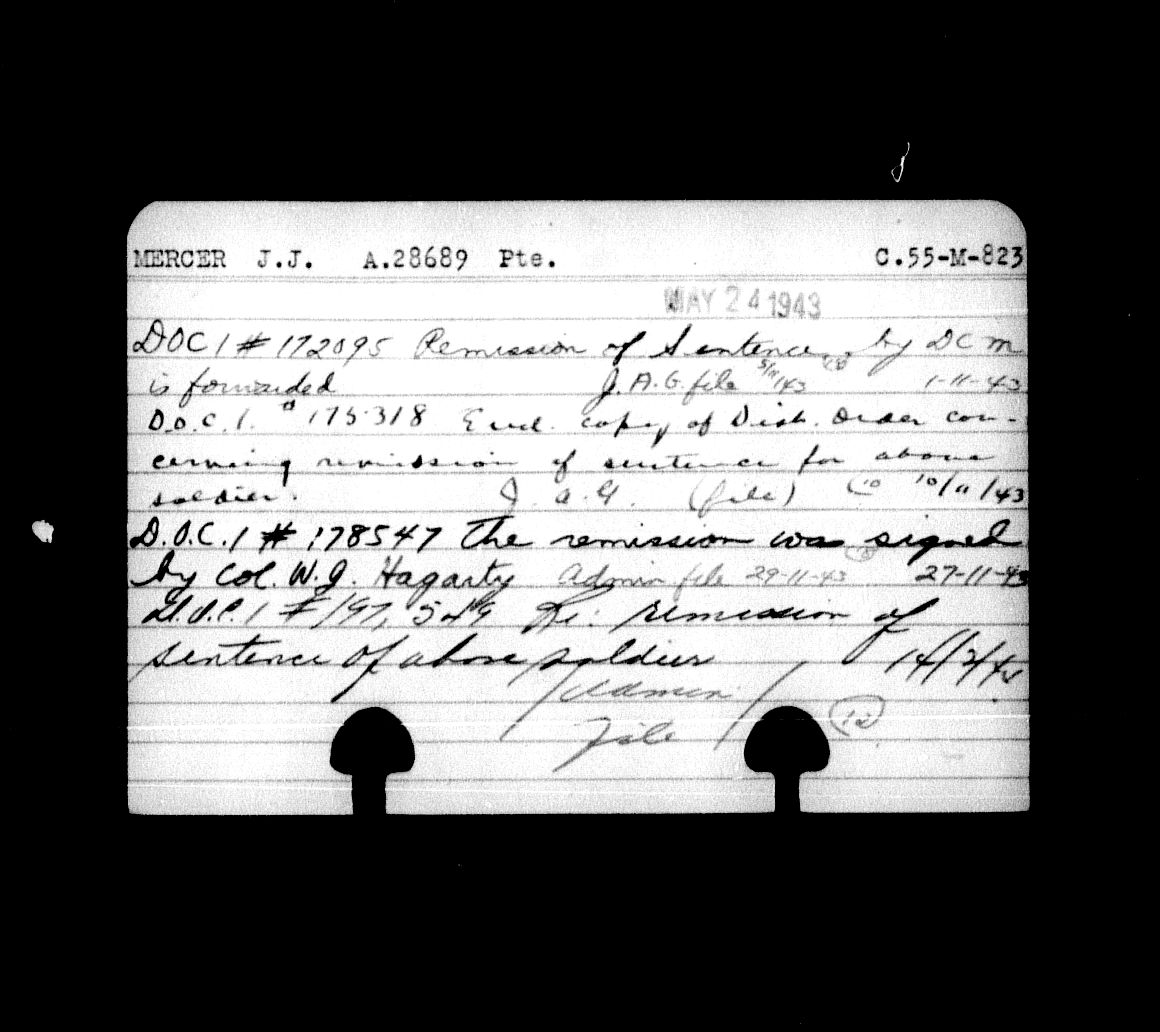 MERCER J.J. A.28689 Pte. C.55-M-823
MAY 24 1943
DOC 1 # 172095 Remission of Sentence by DCM
is forwarded J.A.G. file 5/11/43 1-11-43
D.O.C.1. # 175318 Encl. copy of Dist. Order con-
cerning remission of sentence for above
soldier. J.A.G. (file) 10 10/11/43
D.O.C.1 # 178547 The remission was signed
by Col. W.G. Hagarty Admin file 29-11-43 27-11-43
D.O.C.1 # 197, 549 Re: remission of
sentence of above soldier
Admin
File 12